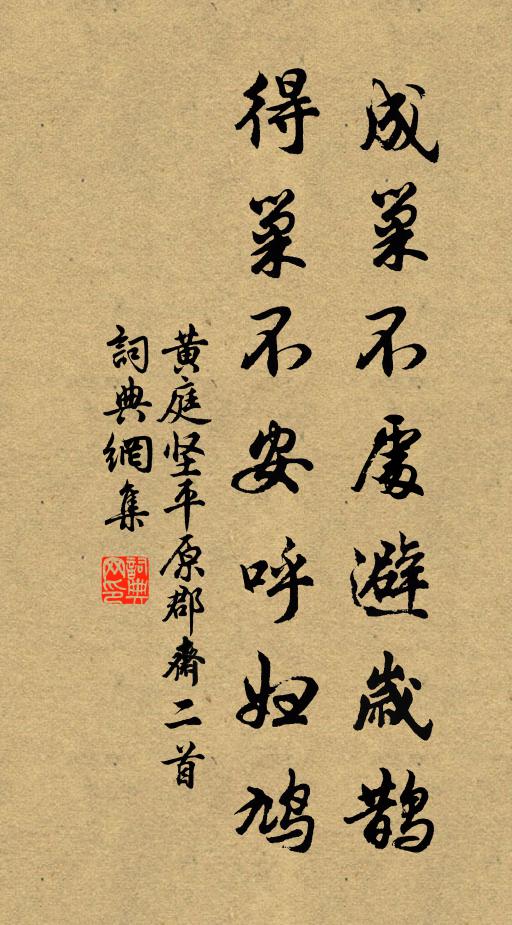 成巢不處避歲鵲
得巢不安呼婦鳩
黄庭坚平原郡齋二首
詞典網集
詞典网印